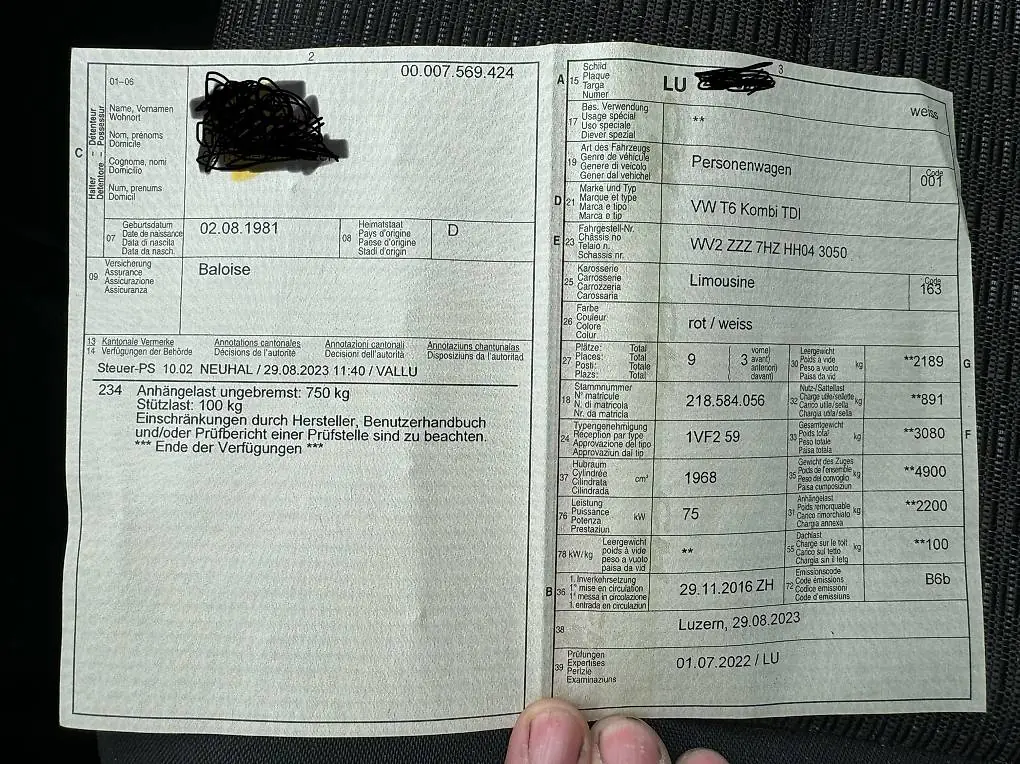 2
00.007.569.424
01–06
Name, Vornamen
Wohnort
Nom, prénoms
Domicile
Cognome, nomi
Domicilio
Num, prenums
Domicil
C
Halter – Détenteur
Detentore – Possessur
07
Geburtsdatum
Date de naissance
Data di nascita
Data da nasch.
02.08.1981
08
Heimatstaat
Pays d'origine
Paese d'origine
Stadi d'origin
D
09
Versicherung
Assurance
Assicurazione
Assicuranza
Baloise
13 Kantonale Vermerke Annotations cantonales Annotazioni cantonali Annotaziuns chantunalas
14 Verfügungen der Behörde Décisions de l'autorité Decisioni dell'autorità Disposiziuns da l'autoritad
Steuer-PS 10.02 NEUHAL / 29.08.2023 11:40 / VALLU
234 Anhängelast ungebremst: 750 kg
Stützlast: 100 kg
Einschränkungen durch Hersteller, Benutzerhandbuch
und/oder Prüfbericht einer Prüfstelle sind zu beachten.
*** Ende der Verfügungen ***
3
A 15
Schild
Plaque
Targa
Numer
LU
weiss
17
Bes. Verwendung
Usage spécial
Uso speciale
Diever spezial
**
19
Art des Fahrzeugs
Genre de véhicule
Genere di veicolo
Gener dal vehichel
Personenwagen
Code
001
D 21
Marke und Typ
Marque et type
Marca e tipo
Marca e tip
VW T6 Kombi TDI
E 23
Fahrgestell-Nr.
Châssis no
Telaio n.
Schassis nr.
WV2 ZZZ 7HZ HH04 3050
25
Karosserie
Carrosserie
Carrozzeria
Carossaria
Limousine
Code
163
26
Farbe
Couleur
Colore
Colur
rot / weiss
27
Plätze: Total
Places: Total
Posti: Totale
Plazs: Total
9
3
vorne)
avant)
anteriori)
davant)
30
Leergewicht
Poids à vide
Peso a vuoto
Paisa da vid
kg
**2189
G
18
Stammnummer
N° matricule
N. di matricola
Nr. da matricla
218.584.056
32
Nutz-/Sattellast
Charge utile/sellette
Carico utile/sella
Chargia utila/sella
kg
**891
24
Typengenehmigung
Réception par type
Approvazione del tipo
Approvaziun dal tip
1VF2 59
33
Gesamtgewicht
Poids total
Peso totale
Paisa totala
kg
**3080
F
37
Hubraum
Cylindrée
Cilindrata
Cilindrada
cm³
1968
35
Gewicht des Zuges
Poids de l'ensemble
Peso del convoglio
Paisa cumposiziun
kg
**4900
76
Leistung
Puissance
Potenza
Prestaziun
kW
75
31
Anhängelast
Poids remorquable
Carico rimorchiato
Chargia annexa
kg
**2200
78 kW/kg
Leergewicht
poids à vide
peso a vuoto
paisa da vid
**
55
Dachlast
Charge sur le toit
Carico sul tetto
Chargia sin il tetg
kg
**100
B 36
1. Inverkehrsetzung
1re mise en circulation
1a messa in circolazione
1. entrada en circulaziun
29.11.2016 ZH
72
Emissionscode
Code émissions
Codice emissioni
Code d'emissiuns
B6b
38
Luzern, 29.08.2023
39
Prüfungen
Expertises
Perizie
Examinaziuns
01.07.2022 / LU